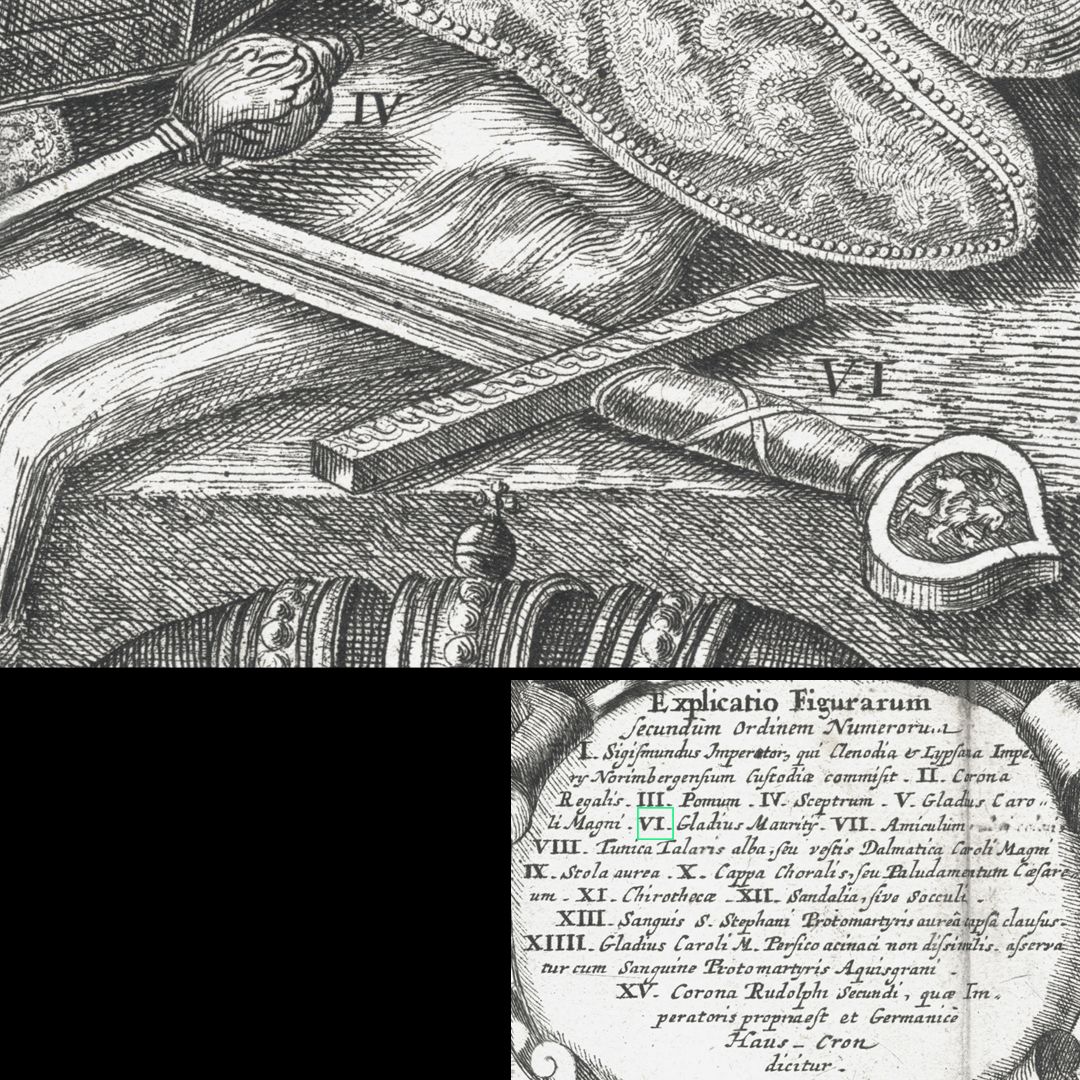 IV
VI
Explicatio Figurarum
secundùm Ordinem Numeroru
I. Sigismundus Imperator, qui Clenodia & Lypsana Impe
ry Norimbergensium Custodiæ commisit. II. Corona
Regalis. III. Pomum. IV. Sceptrum. V. Gladus Caro
li Magni. VI. Gladius Maurity. VII. Amiculum
VIII. Tunica Talaris alba, seu vestis Dalmatica Caroli Magni
IX. Stola aurea. X. Cappa Choralis, seu Paludamentum Cæsare
um. XI. Chirothecæ XII. Sandalia, sive Socculi.
XIII. Sanguis S. Stephani Protomartyris aureâ capsâ clausus.
XIIII. Gladius Caroli M. Persico acinaci non dissimilis. asserva
tur cum Sanguine Protomartyris Aquisgrani.
XV. Corona Rudolphi Secundi, quæ Im-
peratoris propria est et Germanicè
Haus-Cron
dicitur.